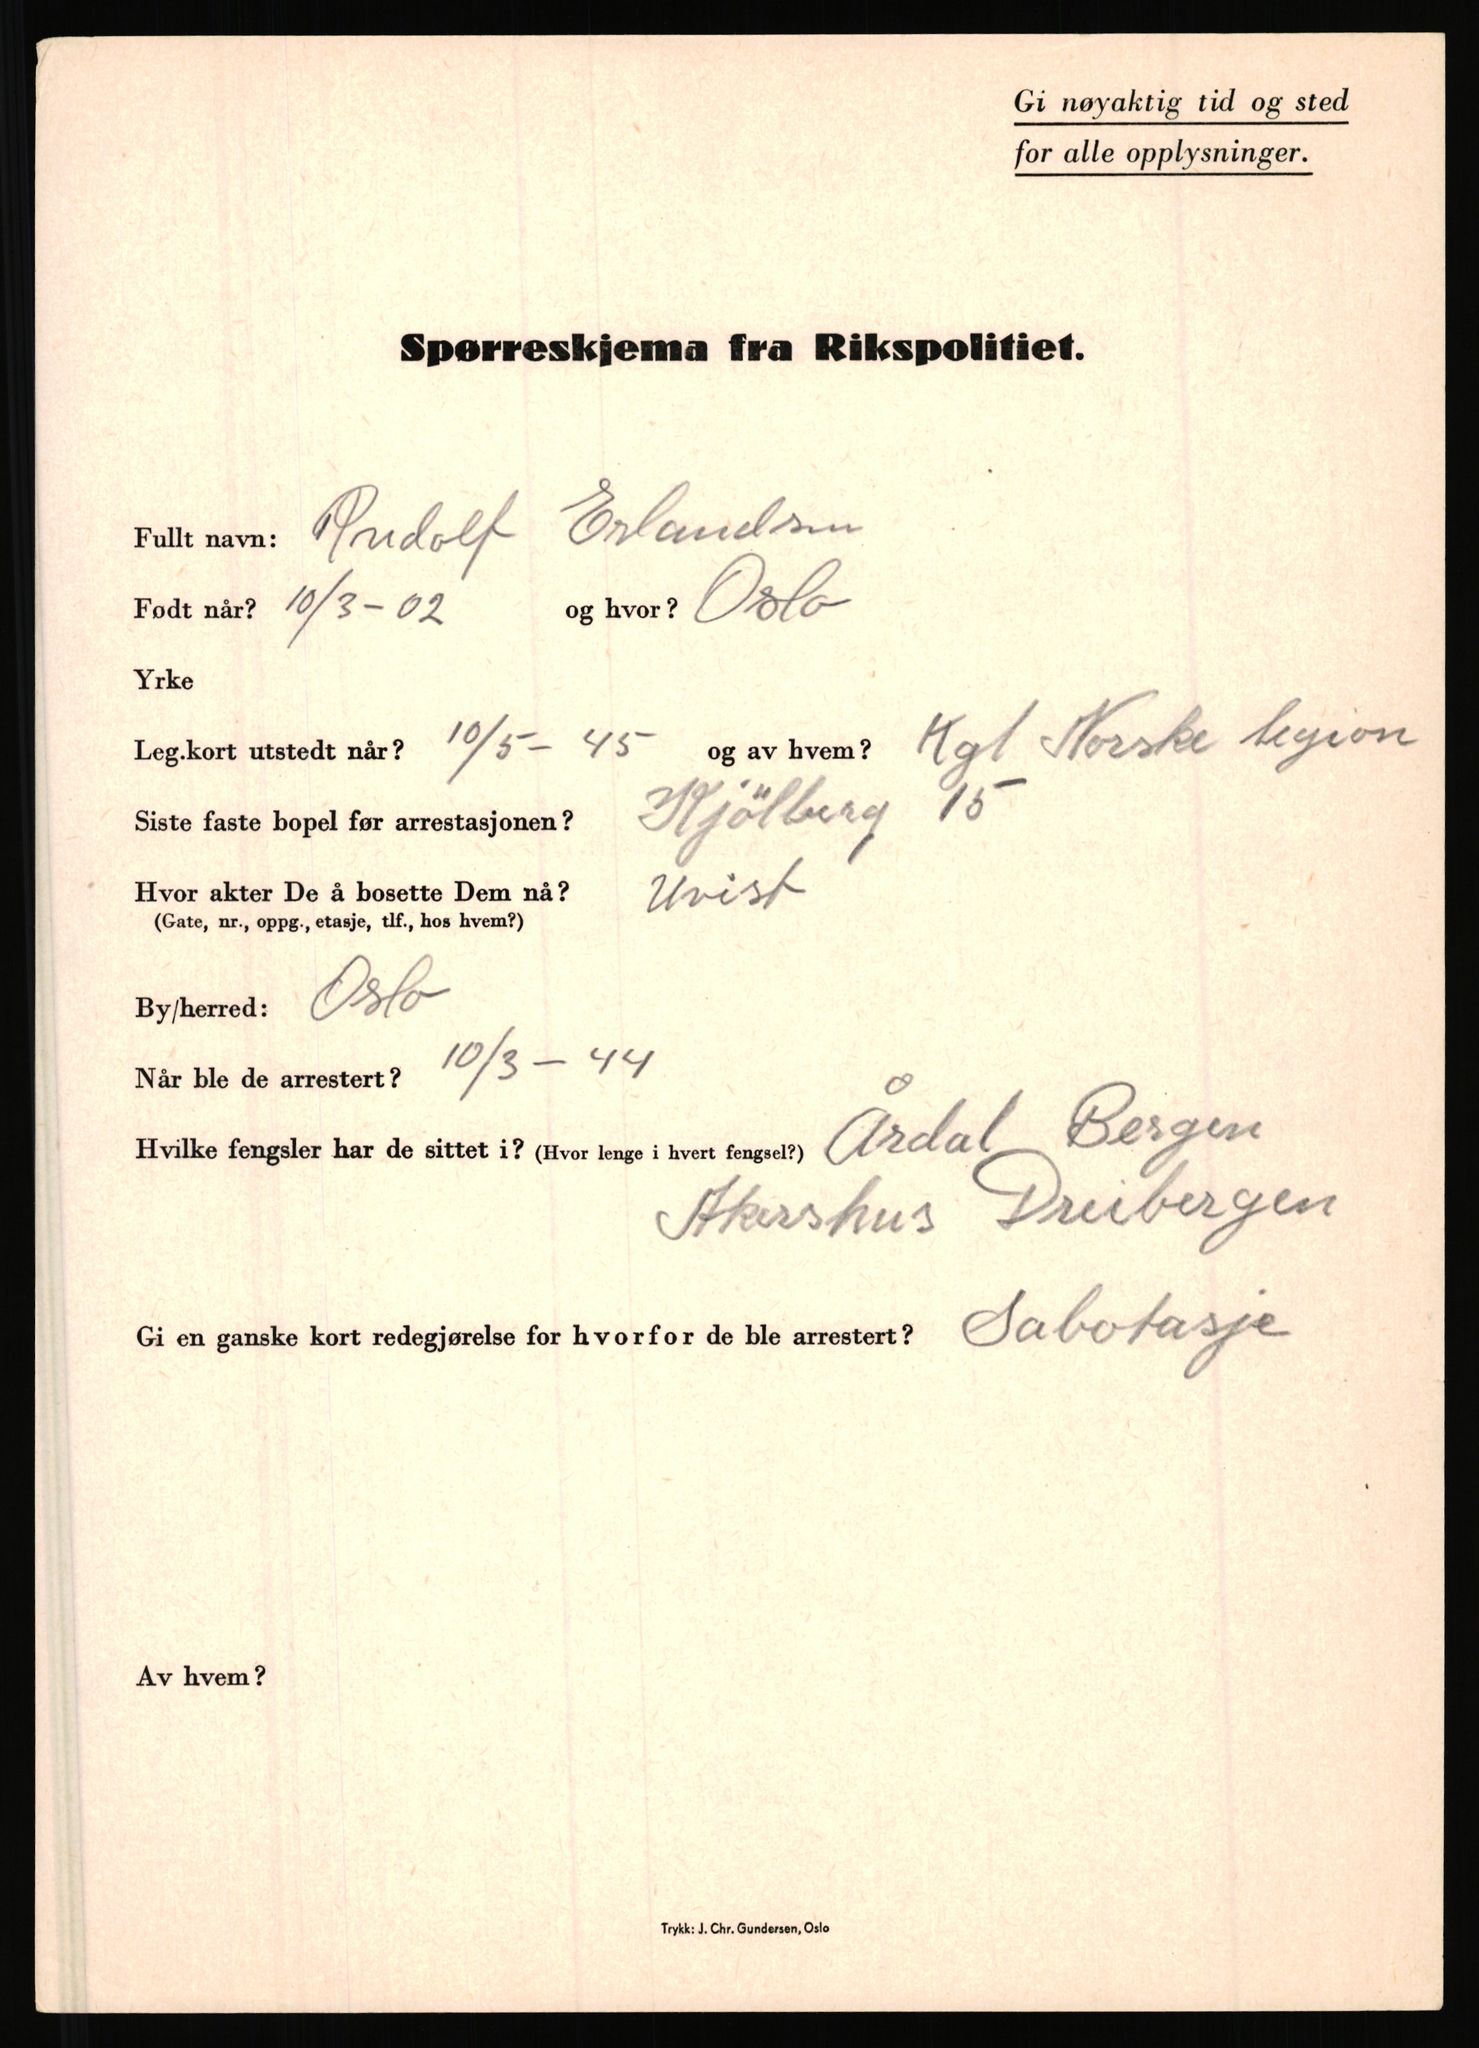 Gi nøyaktig tid og sted
for alle opplysninger.
Spørreskjema fra Rikspolitiet.
Fullt navn: Rudolf Erlandsen
Født når? 10/3-02 og hvor? Oslo
Yrke
Leg.kort utstedt når? 10/5-45 og av hvem? Kgl Norske legion
Siste faste bopel før arrestasjonen? Kjölberg 15
Hvor akter De å bosette Dem nå? Uvist
(Gate, nr., oppg., etasje, tlf., hos hvem?)
By/herred: Oslo
Når ble de arrestert? 10/3-44
Hvilke fengsler har de sittet i? (Hvor lenge i hvert fengsel?) Årdal Bergen
Akershus Dreibergen
Gi en ganske kort redegjørelse for hvorfor de ble arrestert? Sabotasje
Av hvem?
Trykk: J. Chr. Gundersen, Oslo